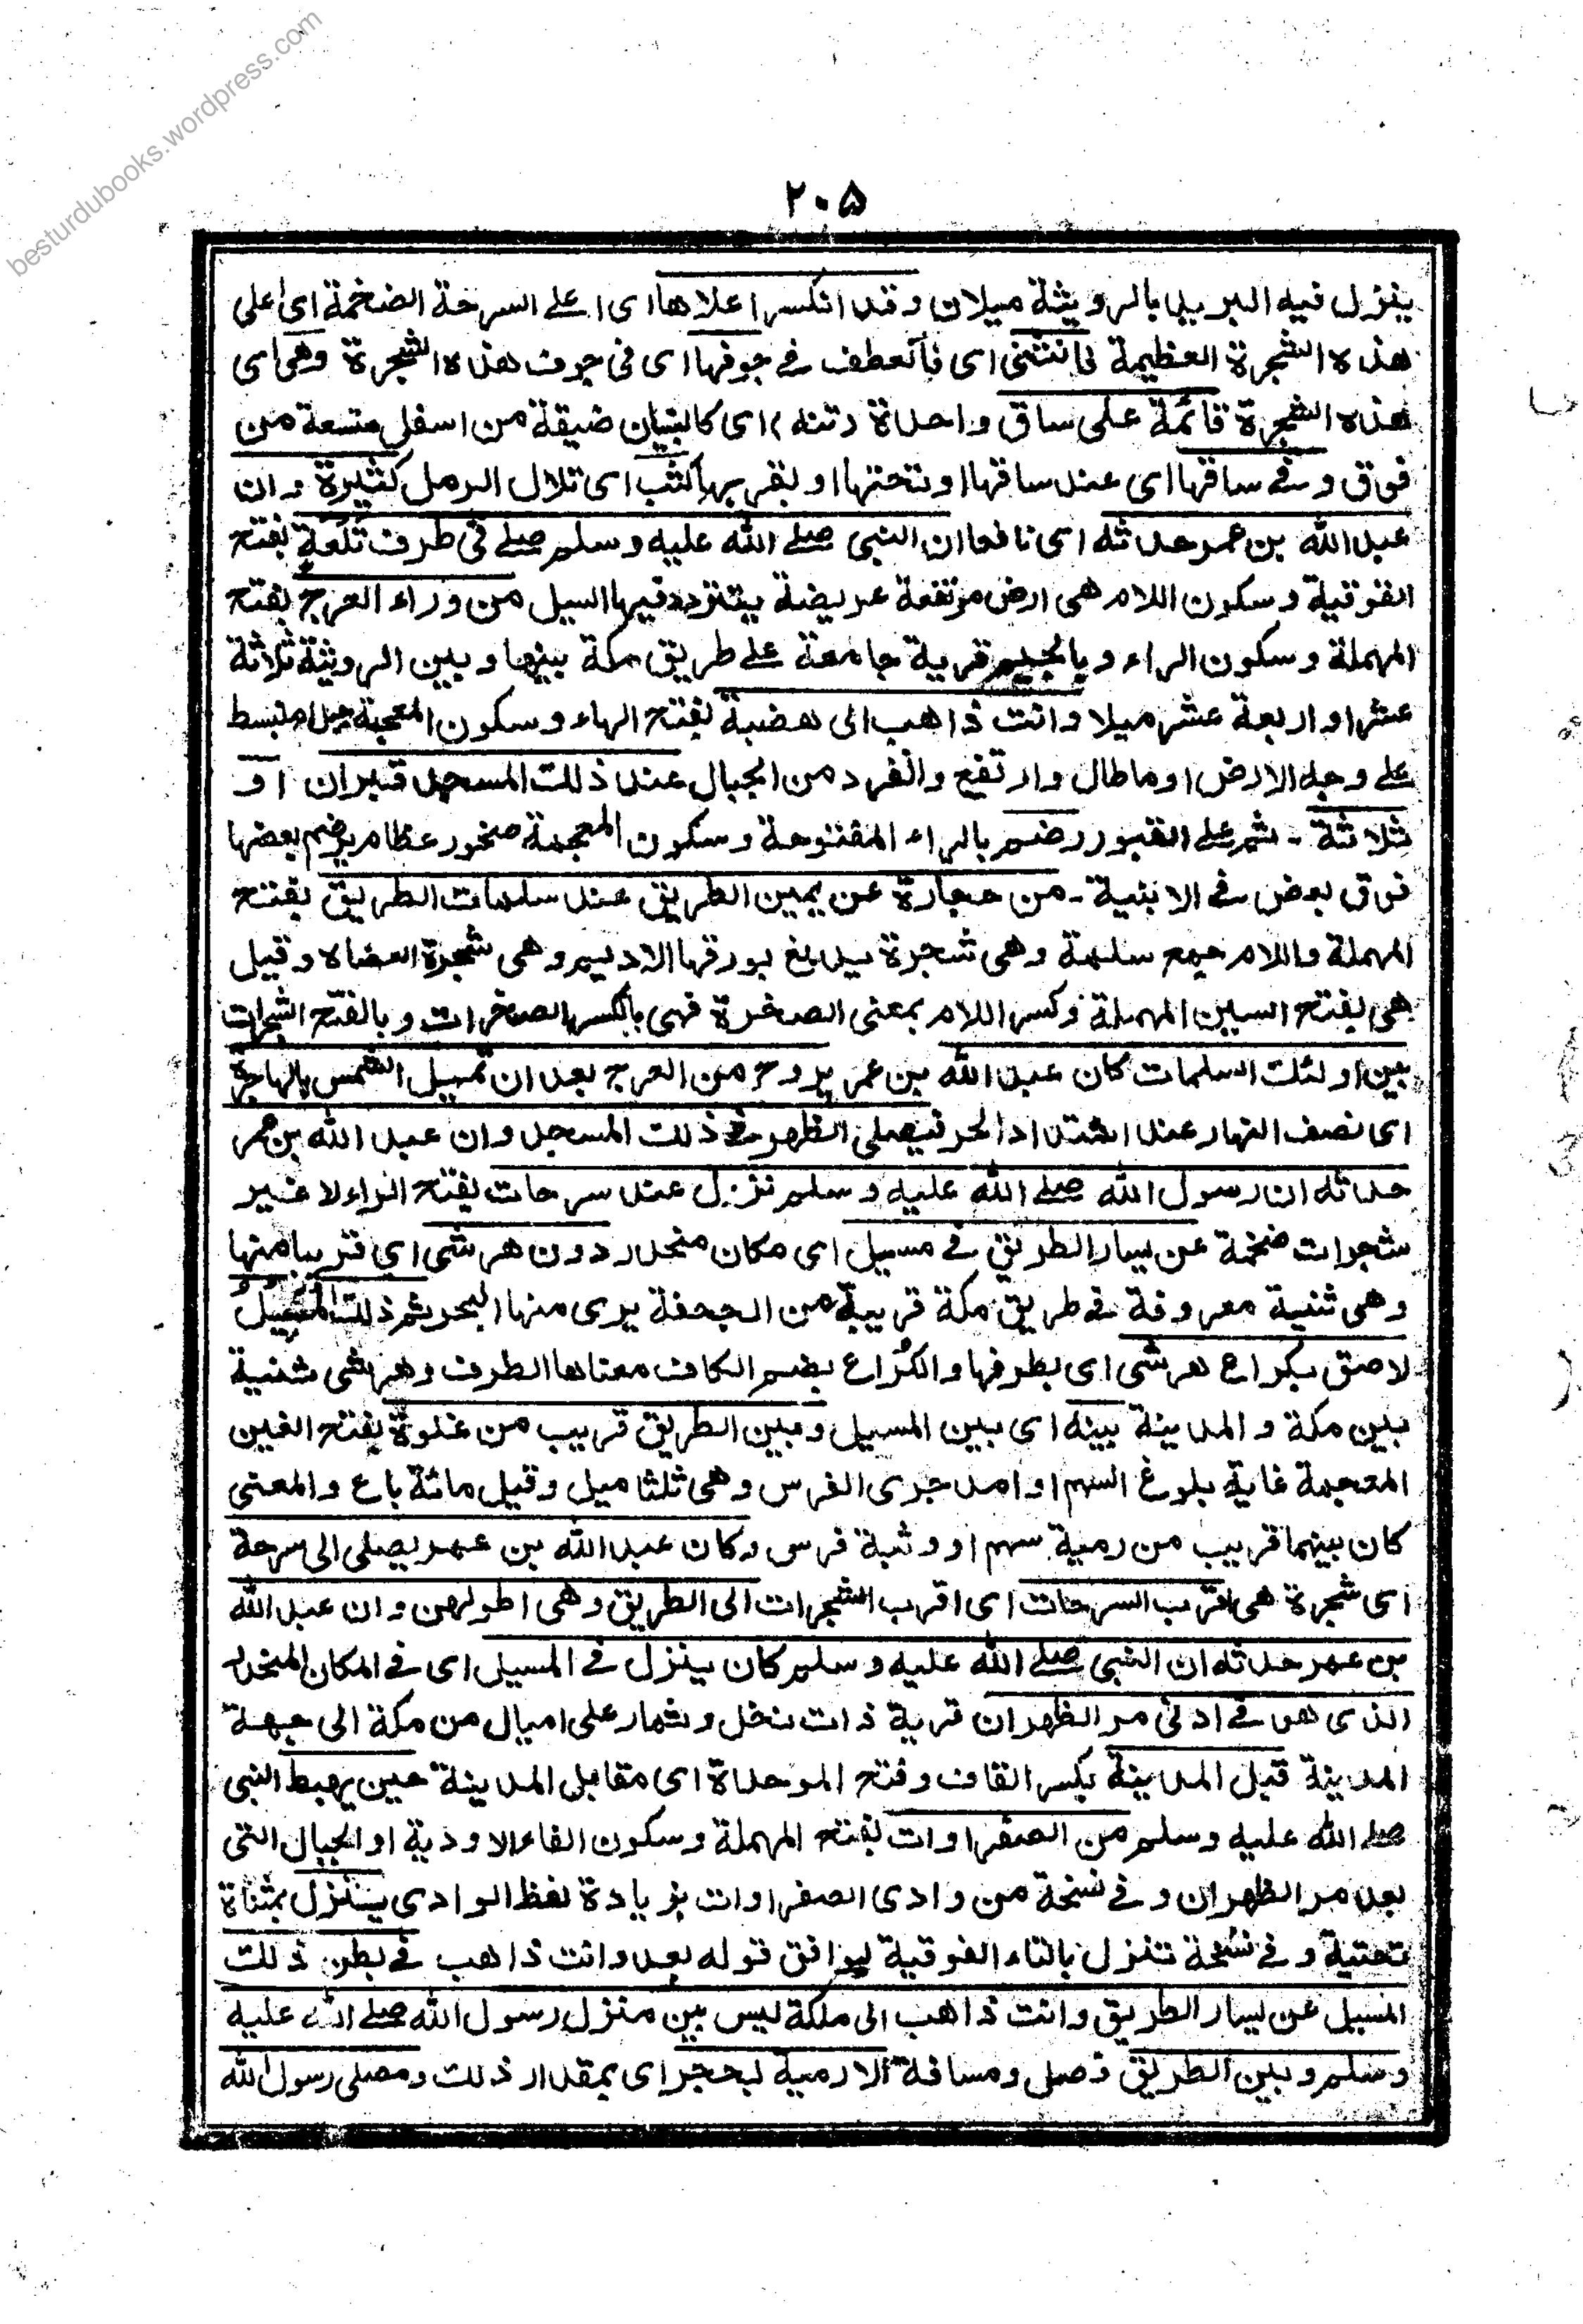 besturdubooks.wordpress.com
۲۰۵
ينزل فيه البريد بالرويثة ميلان وقد انكسر اعلاها اى اعلے السرحة الضخمة اى اعلى
هذه الشجرة العظيمة فانثنى اى فانعطف فے جوفها اى فى جوف هذه الشجرة وهى اى
هذه الشجرة قائمة على ساق واحدة دتنه) اى كالبنيان ضيقة من اسفل متسعة من
فوق وفے ساقها اى عند ساقها او تحتها او بقربها كثب اى تلال الرمل كثيرة وان
عبد الله بن عمر حدثه اى نافعا ان النبى صلے الله عليه وسلم صلے فى طرف تلعة بفتح
الفوقية وسكون اللام هى ارض مرتفعة عريضة يتردد فيها السيل من وراء العرج بفتح
المهملة وسكون الراء وبالجيم قرية جامعة علے طريق مكة بينها وبين الرويثة ثلاثة
عشر او اربعة عشر ميلا وانت ذاهب الى هضبة بفتح الهاء وسكون المعجمة جبل منبسط
علے وجه الارض او ما طال وارتفع والفرد من الجبال عند ذلك المسجد قبران او
ثلاثة ۔ ثم علے القبور رضم بالراء المفتوحة وسكون المعجمة صخور عظام يرضم بعضها
فوق بعض فے الابنية ۔ من حجارة عن يمين الطريق عند سلمات الطريق بفتح
المهملة واللام جمع سلمة وهى شجرة يدبغ بورقها الاديم وهى شجرة العضاه وقيل
هى بفتح السين المهملة وكسر اللام بمعنى الصخرة فهى بالكسر الصخرات وبالفتح الشجرات
بين اولئك السلمات كان عبد الله بن عمر يروح من العرج بعد ان تميل الشمس بالهاجرة
اى نصف النهار عند اشتداد الحر فيصلى الظهر فے ذلك المسجد وان عبد الله بن عمر
حدثه ان رسول الله صلے الله عليه وسلم نزل عند سرحات بفتح الراء لا غير
شجرات ضخمة عن يسار الطريق فے مسيل اى مكان منحدر دون هرشى اى قريبا منها
وهى ثنية معروفة فے طريق مكة قريبة من الجحفة يرى منها البحر ثم ذلك المسيل
لاصق بكراع هرشى اى بطرفها والكراع بضم الكاف معناها الطرف وهرشى ثنية
بين مكة والمدينة بينه اى بين المسيل وبين الطريق قريب من غلوة بفتح الغين
المعجمة غاية بلوغ السهم او امد جرى الفرس وهى ثلثا ميل وقيل مائة باع والمعنى
كان بينهما قريب من رمية سهم او وثبة فرس وكان عبد الله بن عمر يصلى الى سرحة
اى شجرة هى اقرب السرحات اى اقرب الشجرات الى الطريق وهى اطولهن وان عبد الله
بن عمر حدثه ان النبى صلے الله عليه وسلم كان ينزل فے المسيل اى فے المكان المنحدر
الذى هو فے ادنى مر الظهران قرية ذات نخل وثمار على اميال من مكة الى جهة
المدينة قبل المدينة بكسر القاف وفتح الموحدة اى مقابل المدينة حين يهبط النبى
صلے الله عليه وسلم من الصفراوات بفتح المهملة وسكون الفاء الاودية او الجبال التى
بعد مر الظهران وفے نسخة من وادى الصفراوات بزيادة لفظ الوادى ينزل بمثناة
تحتية وفے نسخة تنزل بالتاء الفوقية ليوافق قوله بعد وانت ذاهب فے بطن ذلك
المسيل عن يسار الطريق وانت ذاهب الى مكة ليس بين منزل رسول الله صلے الله عليه
وسلم وبين الطريق فصل ومسافة الا رمية بحجر اى بمقدار ذلك ومصلى رسول الله